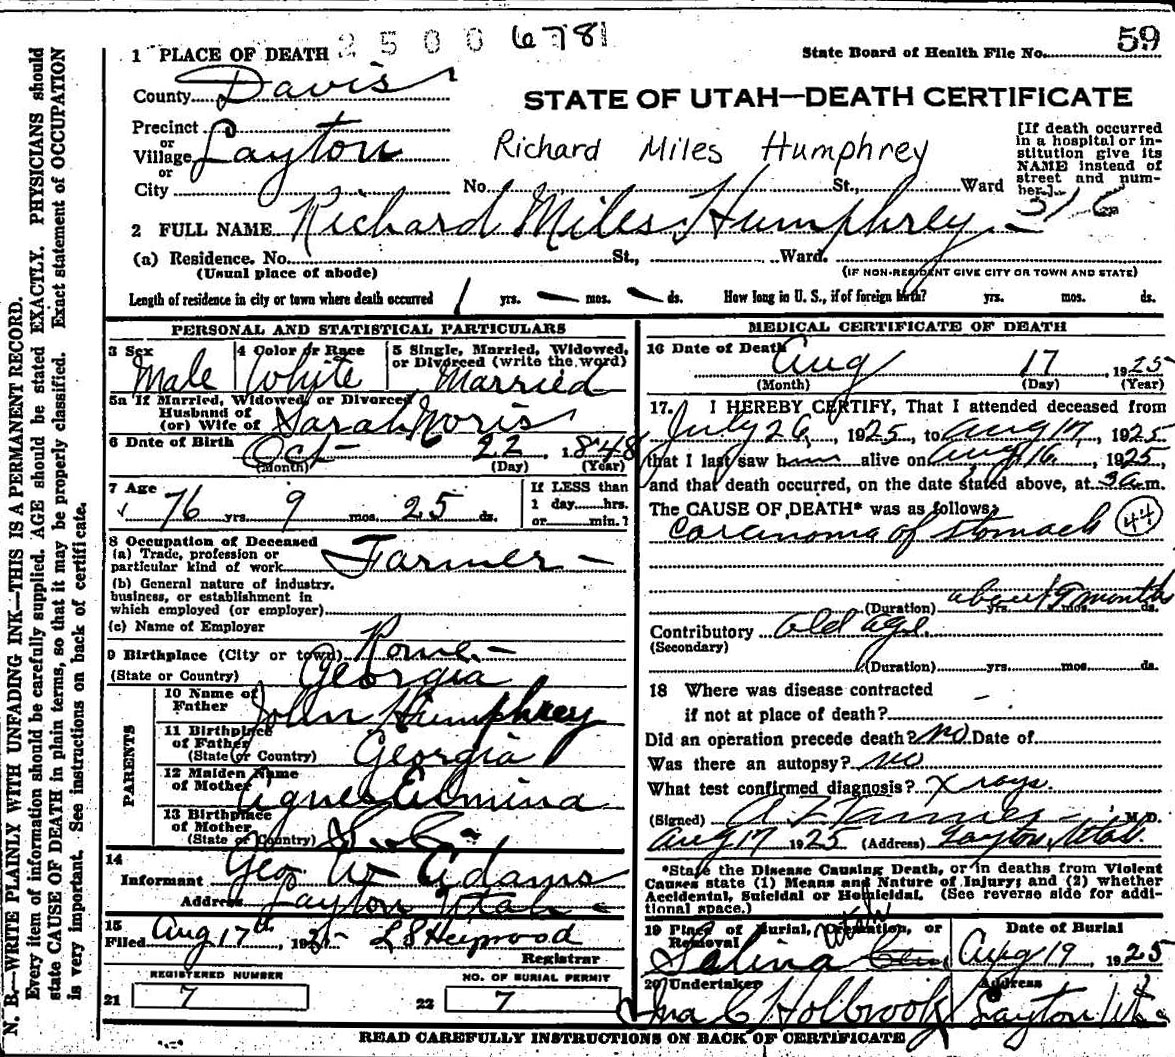 59
1 PLACE OF DEATH 2500 6781
State Board of Health File No.
County Davis
STATE OF UTAH—DEATH CERTIFICATE
Precinct
or
Village Layton
or
City
Richard Miles Humphrey
[If death occurred
in a hospital or in-
stitution give its
NAME instead of
street and num-
ber.]
No. St., Ward
2 FULL NAME Richard Miles Humphrey
(a) Residence. No. St., Ward.
(Usual place of abode)
(IF NON-RESIDENT GIVE CITY OR TOWN AND STATE)
Length of residence in city or town where death occurred 1 yrs. — mos. — ds. How long in U. S., if of foreign birth? yrs. mos. ds.
PERSONAL AND STATISTICAL PARTICULARS
3 Sex
Male
4 Color or Race
White
5 Single, Married, Widowed,
or Divorced (write the word)
Married
5a If Married, Widowed or Divorced
Husband of
(or) Wife of Sarah Noris
6 Date of Birth Oct 22 1848
(Month) (Day) (Year)
7 Age
76 yrs. 9 mos. 25 ds.
If LESS than
1 day hrs.
or min.?
8 Occupation of Deceased
(a) Trade, profession or
particular kind of work Farmer
(b) General nature of industry,
business, or establishment in
which employed (or employer)
(c) Name of Employer
9 Birthplace (City or town) Rome
(State or Country) Georgia
PARENTS
10 Name of
Father John Humphrey
11 Birthplace
of Father
(State or Country) Georgia
12 Maiden Name
of Mother Agnes Elmina
13 Birthplace
of Mother
(State or Country) So. C.
14
Informant Geo W Adams
Address Layton Utah
15
Filed Aug 17th, 1925 L S Heywood
Registrar
REGISTERED NUMBER
21 7
NO. OF BURIAL PERMIT
22 7
MEDICAL CERTIFICATE OF DEATH
16 Date of Death Aug 17 1925
(Month) (Day) (Year)
17. I HEREBY CERTIFY, That I attended deceased from
July 26, 1925, to Aug 17, 1925
that I last saw him alive on Aug 16, 1925,
and that death occurred, on the date stated above, at 3 a.m.
The CAUSE OF DEATH* was as follows:
Carcinoma of Stomach 44
(Duration) about 9 months yrs. mos. ds.
Contributory Old age.
(Secondary)
(Duration) yrs. mos. ds.
18 Where was disease contracted
if not at place of death? -
Did an operation precede death? No Date of
Was there an autopsy? No
What test confirmed diagnosis? X rays.
(Signed) A Z Tanner M. D.
Aug 17 1925 (Address) Layton, Utah.
*State the Disease Causing Death, or in deaths from Violent
Causes state (1) Means and Nature of Injury; and (2) whether
Accidental, Suicidal or Homicidal. (See reverse side for addi-
tional space.)
19 Place of Burial, Cremation, or
Removal
Salina Utah
Date of Burial
Aug 19, 1925
20 Undertaker
C Holbrook
Address
Layton Ut
READ CAREFULLY INSTRUCTIONS ON BACK OF CERTIFICATE
N. B.—WRITE PLAINLY WITH UNFADING INK—THIS IS A PERMANENT RECORD.
Every item of information should be carefully supplied. AGE should be stated EXACTLY. PHYSICIANS should
state CAUSE OF DEATH in plain terms, so that it may be properly classified. Exact statement of OCCUPATION
is very important. See instructions on back of certificate.